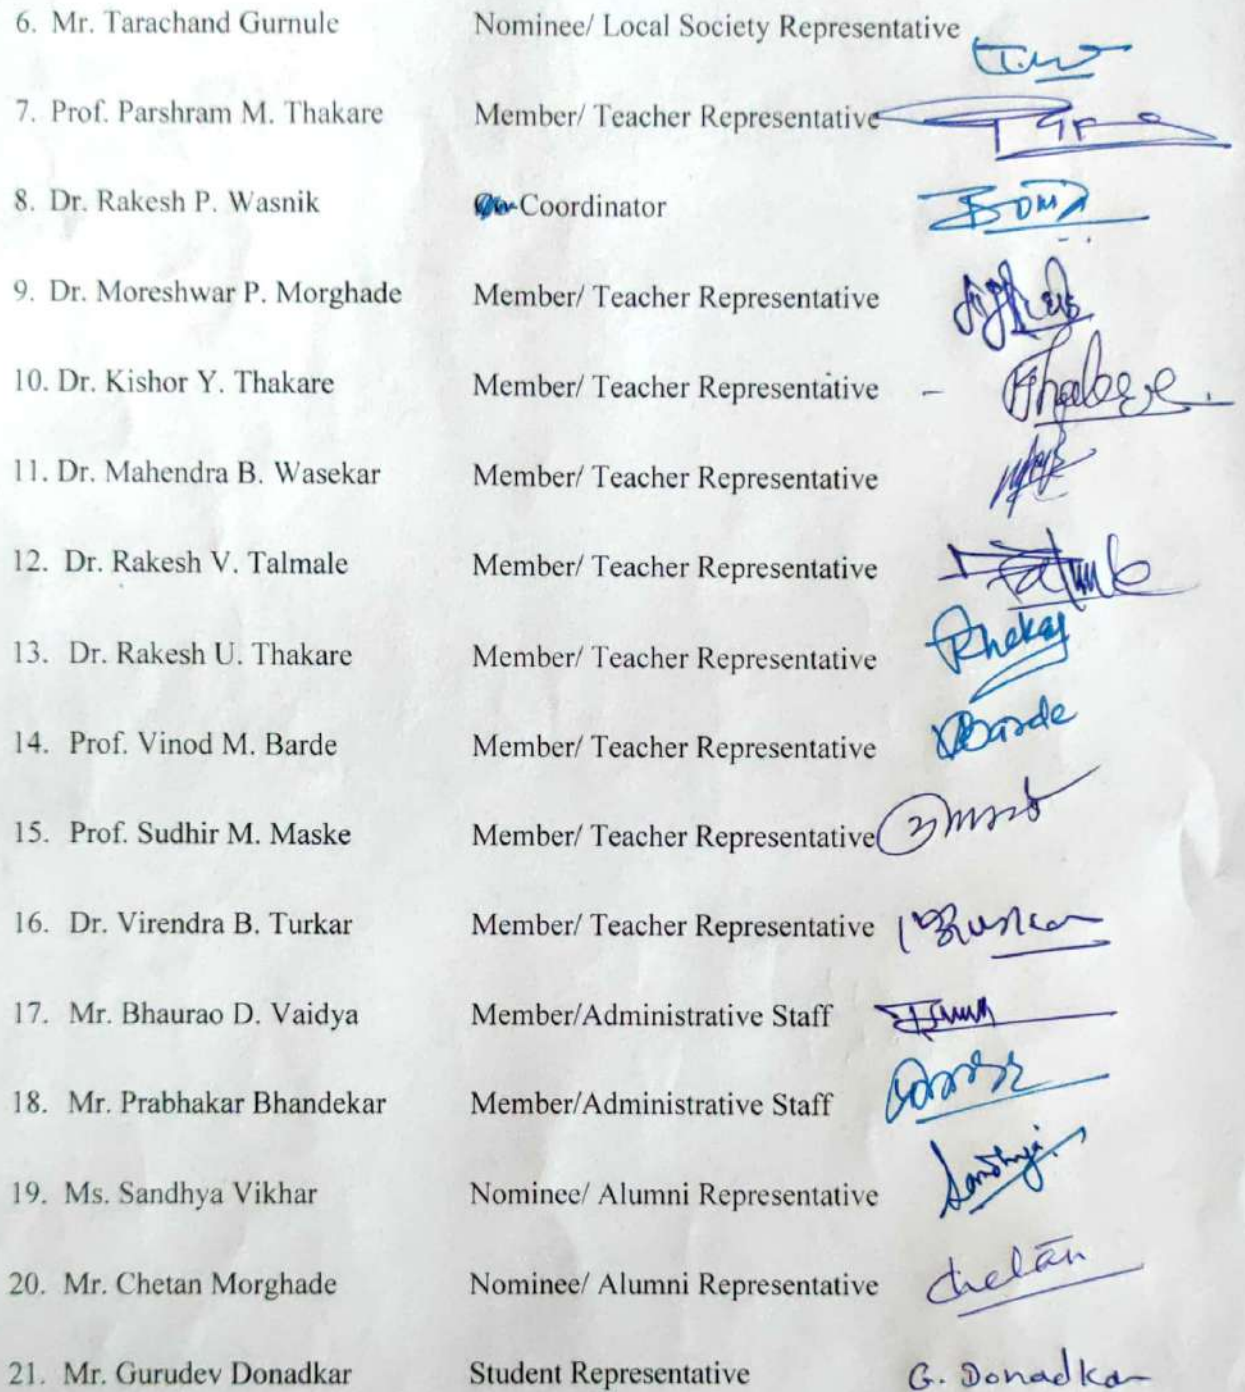 6. Mr. Tarachand Gurnule Nominee/ Local Society Representative
7. Prof. Parshram M. Thakare Member/ Teacher Representative
8. Dr. Rakesh P. Wasnik Coordinator
9. Dr. Moreshwar P. Morghade Member/ Teacher Representative
10. Dr. Kishor Y. Thakare Member/ Teacher Representative -
11. Dr. Mahendra B. Wasekar Member/ Teacher Representative
12. Dr. Rakesh V. Talmale Member/ Teacher Representative
13. Dr. Rakesh U. Thakare Member/ Teacher Representative
14. Prof. Vinod M. Barde Member/ Teacher Representative Barde
15. Prof. Sudhir M. Maske Member/ Teacher Representative
16. Dr. Virendra B. Turkar Member/ Teacher Representative
17. Mr. Bhaurao D. Vaidya Member/Administrative Staff
18. Mr. Prabhakar Bhandekar Member/Administrative Staff
19. Ms. Sandhya Vikhar Nominee/ Alumni Representative Sandhya
20. Mr. Chetan Morghade Nominee/ Alumni Representative Chetan
21. Mr. Gurudev Donadkar Student Representative G. Donadkar